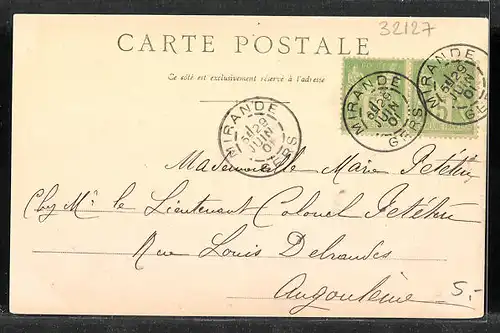 32127
CARTE POSTALE
Ce côté est exclusivement réservé à l'adresse
MIRANDE
5E 29
JUIN
01
GERS
MIRANDE
5E 29
JUIN
01
GERS
MIRANDE
5E 29
JUIN
01
GERS
Mademoiselle Marie Petétin
Chez Mr. le Lieutenant Colonel Petétin
Rue Louis Delrandes
Angoulême
5.-